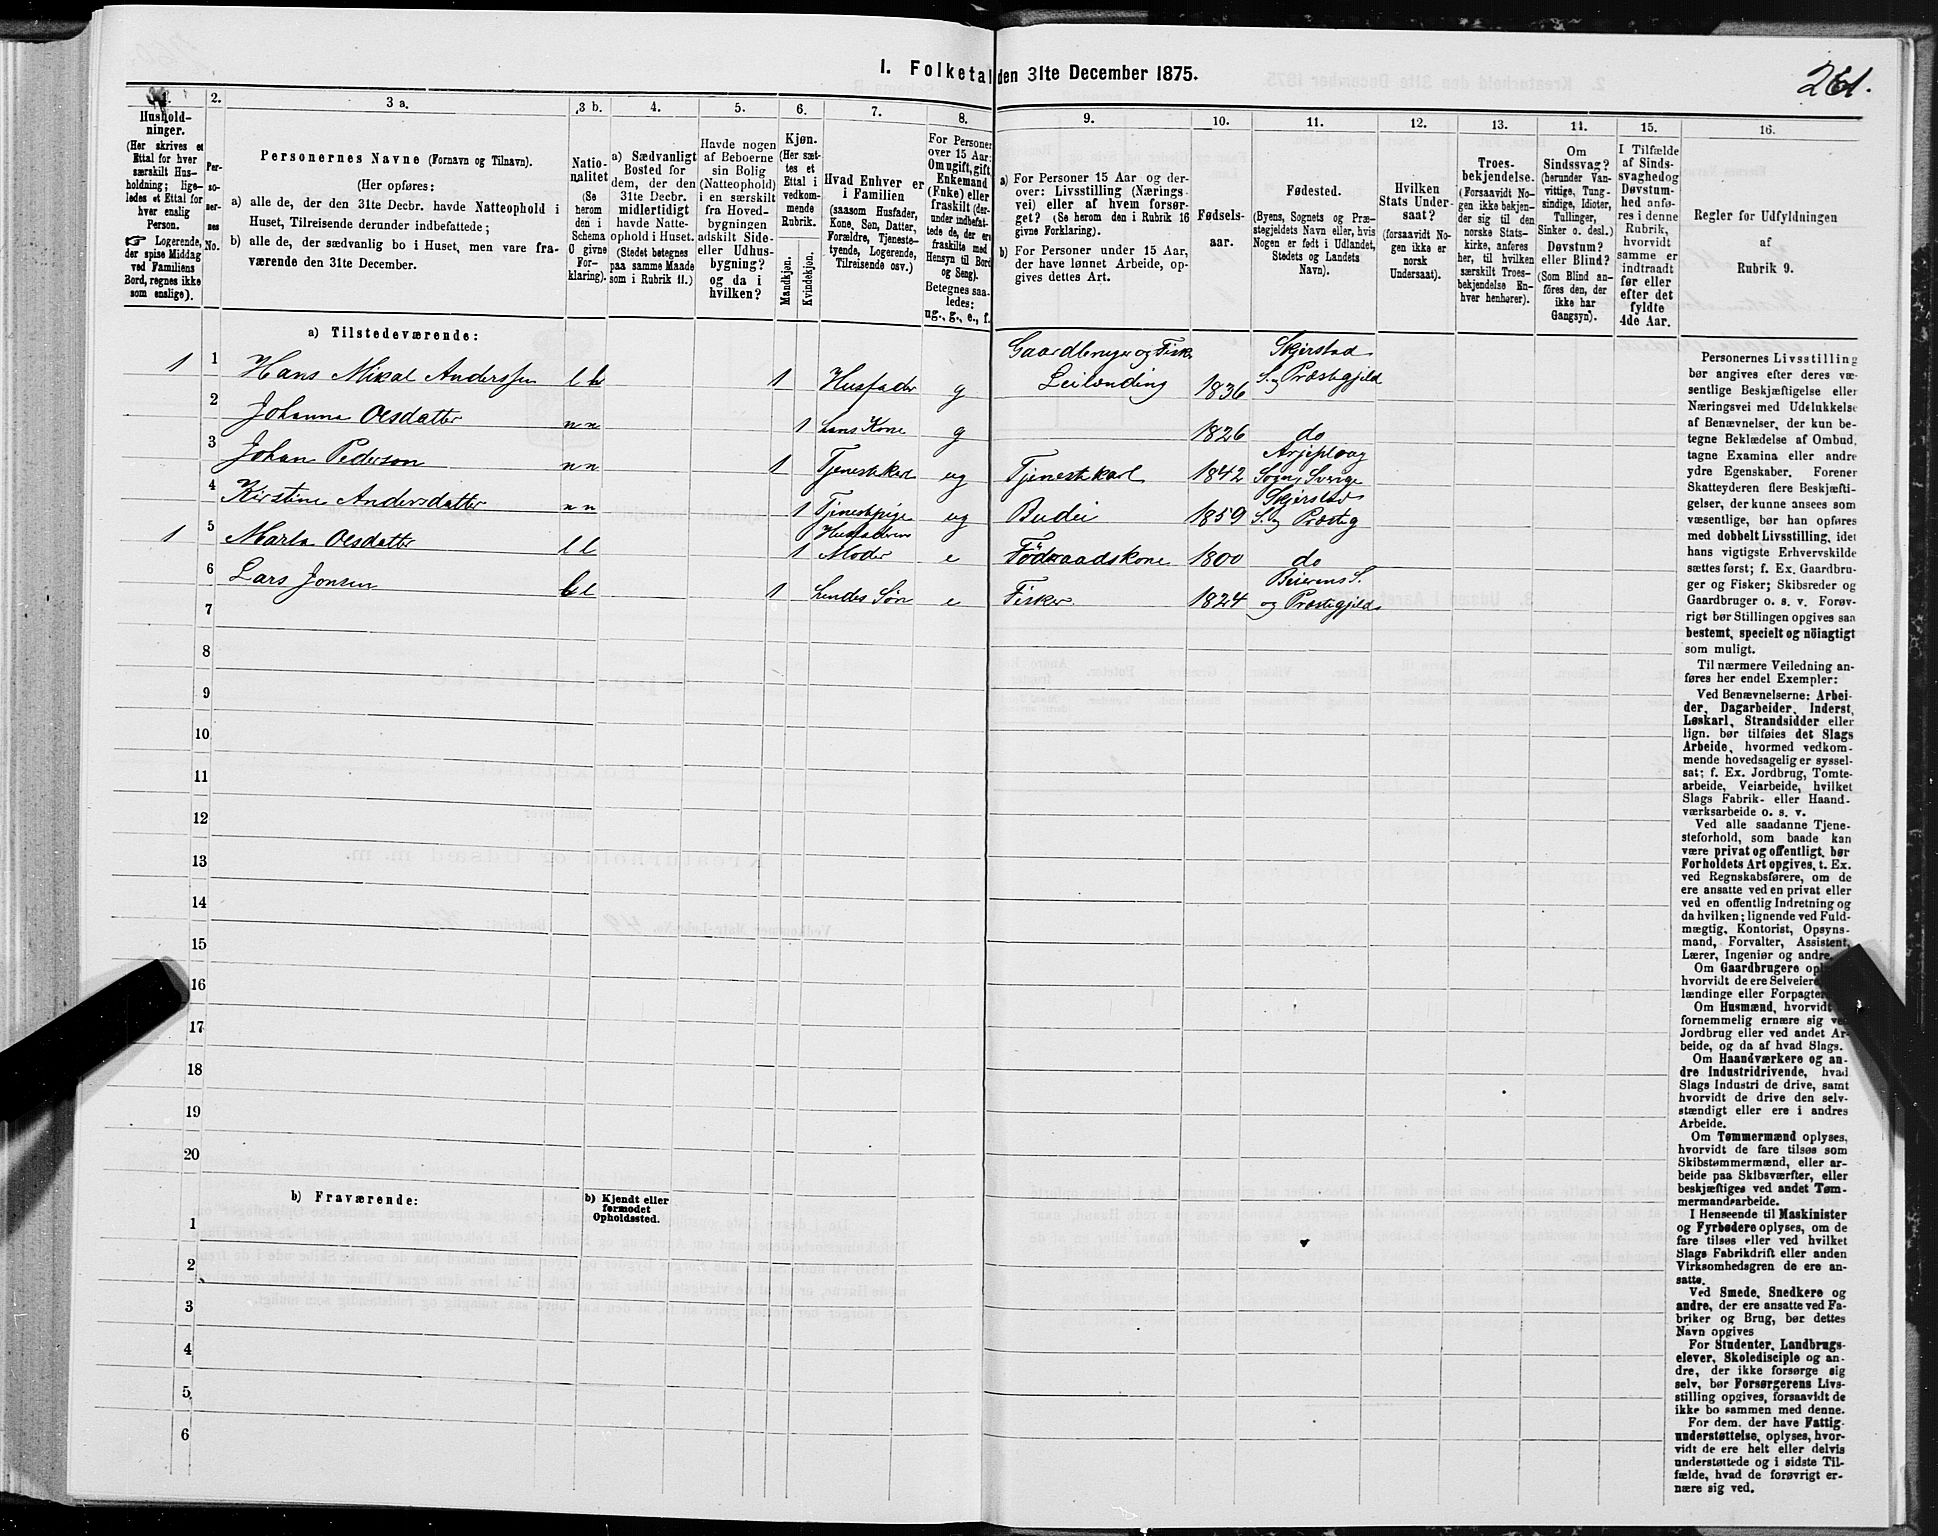 I. Folketal den 31te December 1875.
261.
1.
Husholdninger.
(Her skrives et
Ettal for hver
særskilt Husholdning; ligeledes
et Ettal for
hver enslig
Person.
☞ Logerende,
der spise Middag
ved Familiens
Bord, regnes ikke
som enslige).
2.
Personernes
No.
3 a.
Personernes Navne (Fornavn og Tilnavn).
(Her opføres:
a) alle de, der den 31te Decbr. havde Natteophold i
Huset, Tilreisende derunder indbefattede;
b) alle de, der sædvanlig bo i Huset, men vare fraværende
den 31te December.
3 b.
Nationalitet
(Se
herom
den i
Schema
0 givne
Forklaring).
4.
a) Sædvanligt
Bosted for
dem, der den
31te Decbr.
midlertidigt
havde Natteophold
i Huset.
(Stedet betegnes
paa samme Maade
som i Rubrik 11.)
5.
Havde nogen
af Beboerne
sin Bolig
(Natteophold)
i en særskilt
fra Hovedbygningen
adskilt Side-
eller Udhusbygning?
og da i
hvilken?
6.
Kjøn.
(Her sættes
et
Ettal i
vedkommende
Rubrik.
Mandkjøn.
Kvindekjøn.
7.
Hvad Enhver er
i Familien
(saasom Husfader,
Kone, Søn, Datter,
Forældre, Tjenestetyende,
Logerende,
Tilreisende osv.)
8.
For Personer
over 15 Aar:
Om ugift, gift,
Enkemand
(Enke) eller
fraskilt (derunder
indbefattede
de, der ere
fraskilte med
Hensyn til Bord
og Seng).
Betegnes saaledes:
ug., g., e., f.
9.
a) For Personer 15 Aar og derover:
Livsstilling (Næringsvei)
eller af hvem forsørget?
(Se herom den i Rubrik 16
givne Forklaring).
b) For Personer under 15 Aar,
der have lønnet Arbeide, opgives
dettes Art.
10.
Fødselsaar.
11.
Fødested.
(Byens, Sognets og Præstegjeldets
Navn eller, hvis
Nogen er født i Udlandet,
Stedets og Landets
Navn).
12.
Hvilken
Stats Undersaat?
(forsaavidt Nogen
ikke er
norsk
Undersaat).
13.
Troesbekjendelse.
(Forsaavidt Nogen
ikke bekjender
sig til den
norske Statskirke,
anføres
her, til hvilken
særskilt Troesbekjendelse
Enhver
henhører).
14.
Om
Sindssvag?
(herunder Vanvittige,
Tungsindige,
Idioter,
Tullinger,
Sinker o. desl.)
Døvstum?
eller Blind?
(Som Blind anføres
den, der
ikke har
Gangsyn).
15.
I Tilfælde
af Sindssvaghed
og
Døvstumhed
anføres
i denne
Rubrik,
hvorvidt
samme er
indtraadt
før eller
efter det
fyldte
4de Aar.
16.
Regler for Udfyldningen
af
Rubrik 9.
a) Tilstedeværende:
1 1 Hans Mikal Anderssen 1 Husfader g Gaardbruger og Fisker Leilænding 1836 Skjerstad S. og Præstegjeld
2 Johanna Olsdatter n n 1 hans Kone g 1826 do
3 Johan Pederson n n 1 Tjenestekarl ug Tjenestekarl 1842 Arjeploug Sogn, Sverige
4 Kirstine Andersdatter n n 1 Tjenestepige ug Budei 1859 Skjerstad S. og Præsteg
1 5 Marta Olsdatter l 1 Husfaderens Moder e Föderaadskone 1800 do
6 Lars Jonsen l 1 hendes Søn e Fisker 1824 Beierens S. og Præstegjeld
7
8
9
10
11
12
13
14
15
16
17
18
19
20
b) Fraværende:
b) Kjendt eller
formodet
Opholdssted.
1
2
3
4
5
6
Personernes Livsstilling
bør angives efter deres væsentlige
Beskjæftigelse eller
Næringsvei med Udelukkelse
af Benævnelser, der kun betegne
Beklædelse af Ombud,
tagne Examina eller andre
ydre Egenskaber. Forener
Skatteyderen flere Beskjæftigelser,
der kunne ansees som
væsentlige, bør han opføres
med dobbelt Livsstilling, idet
hans vigtigste Erhvervskilde
sættes først; f. Ex. Gaardbruger
og Fisker; Skibsreder og
Gaardbruger o. s. v. Forøvrigt
bør Stillingen opgives saa
bestemt, specielt og nöiagtigt
som muligt.
Til nærmere Veiledning anføres
her endel Exempler:
Ved Benævnelserne: Arbeider,
Dagarbeider, Inderst,
Løskarl, Strandsidder eller
lign. bør tilføies det Slags
Arbeide, hvormed vedkommende
hovedsagelig er sysselsat;
f. Ex. Jordbrug, Tomtearbeide,
Veiarbeide, hvilket
Slags Fabrik- eller Haandværksarbeide
o. s. v.
Ved alle saadanne Tjenesteforhold,
som baade kan
være privat og offentligt, bør
Forholdets Art opgives, t. Ex.
ved Regnskabsførere, om de
ere ansatte ved en privat eller
ved en offentlig Indretning og
da hvilken; lignende ved Fuldmægtig,
Kontorist, Opsynsmand,
Forvalter, Assistent,
Lærer, Ingeniør og andre.
Om Gaardbrugere
hvorvidt de ere
lændinge eller
Om Husmænd, hvorvidt
fornemmelig ernære sig ved
Jordbrug eller ved andet Arbeide,
og da af hvad Slags.
Om Haandværkere og andre
Industridrivende, hvad
Slags Industri de drive, samt
hvorvidt de drive den selvstændigt
eller ere i andres
Arbeide.
Om Tømmermænd oplyses,
hvorvidt de fare tilsøs som
Skibstømmermænd, eller arbeide
paa Skibsværfter, eller
beskjæftiges ved andet Tømmermandsarbeide.
I Henseende til Maskinister
og Fyrbødere oplyses, om de
fare tilsøs eller ved hvilket
Slags Fabrikdrift eller anden
Virksomhedsgren de ere ansatte.
Ved Smede, Snedkere og
andre, der ere ansatte ved Fabriker
og Brug, bør dettes
Navn opgives
For Studenter, Landbrugselever,
Skoledisciple og andre,
der ikke forsørge sig
selv, bør Forsørgerens Livsstilling
opgives, forsaavidt de
ikke bo sammen med denne.
For dem, der have Fattigunderstøttelse,
oplyses, hvorvidt
de ere helt eller delvis
understøttede og i sidste Tilfælde,
hvad de forøvrigt ernære
sig ved.